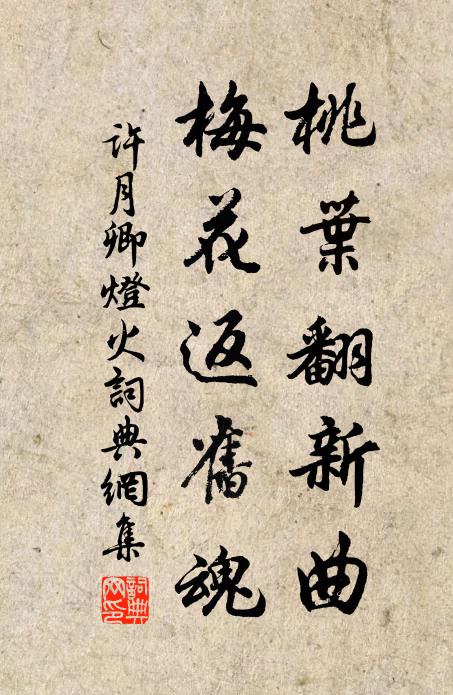 桃葉翻新曲
梅花返舊魂
許月卿燈火詞典網集
詞典網印